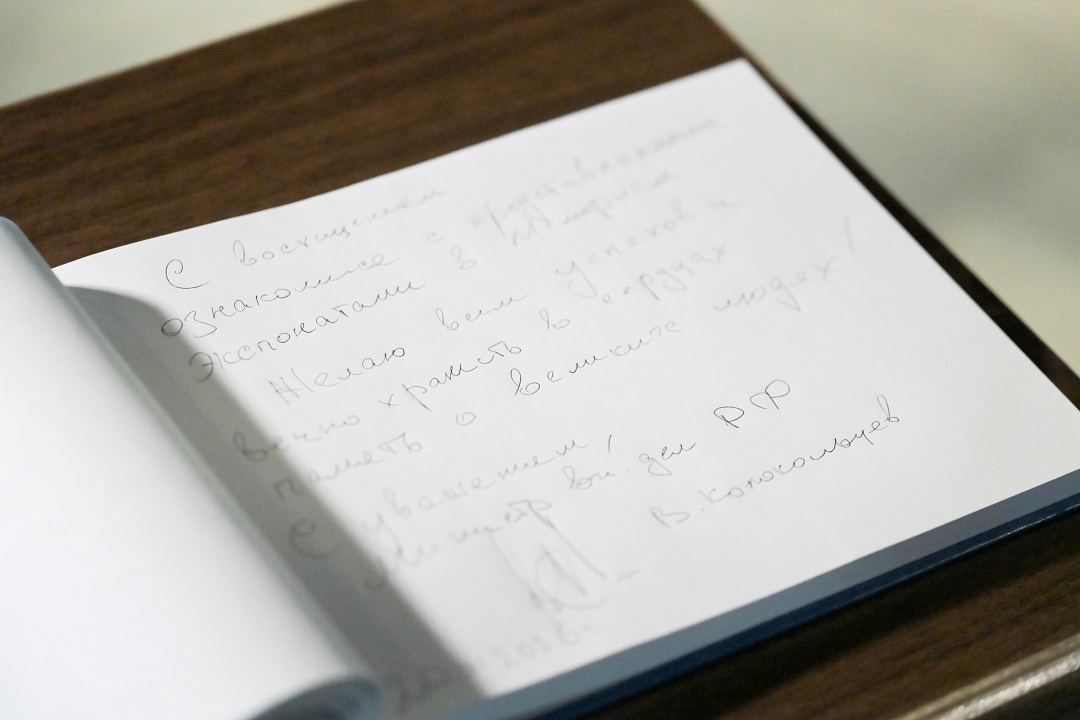 С восхищением
ознакомился с представленными
экспонатами в
Желаю всем успехов и
вечно хранить в сердцах
память о великих людях!
С уважением,
Министр вн. дел РФ
В. Колокольцев